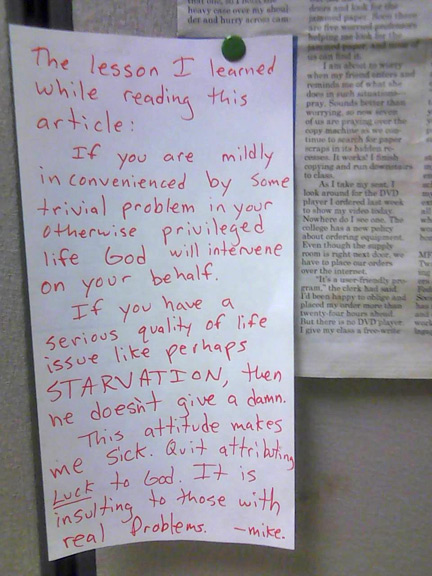 The lesson I learned
while reading this
article:
If you are mildly
inconvenienced by some
trivial problem in your
otherwise privileged
life God will intervene
on your behalf.
If you have a
serious quality of life
issue like perhaps
STARVATION, then
he doesn't give a damn.
This attitude makes
me sick. Quit attributing
Luck to God. It is
insulting to those with
real Problems. -mike.
heavy case over my shoul-
der and hurry across cam-
doors and look for the
jammed paper. Soon there
are five worried professors
helping me look for the
jammed paper, and
us can find it.
I am about to worry
when my friend enters and
reminds me of what she
does in such situations—
pray. Sounds better than
worrying, so now seven
of us are praying over the
copy machine as we con-
tinue to search for paper
scraps in its hidden re-
cesses. It works! I finish
copying and run downstairs
to class.
As I take my seat, I
look around for the DVD
player I ordered last week
to show my video today.
Nowhere do I see one. The
college has a new policy
about ordering equipment.
Even though the supply
room is right next door, we
have to place our orders
over the internet.
"It's a user-friendly pro-
gram," the clerk had said.
I'd been happy to oblige and
placed my order more than
twenty-four hours ahead.
But there is no DVD player.
I give my class a free-write